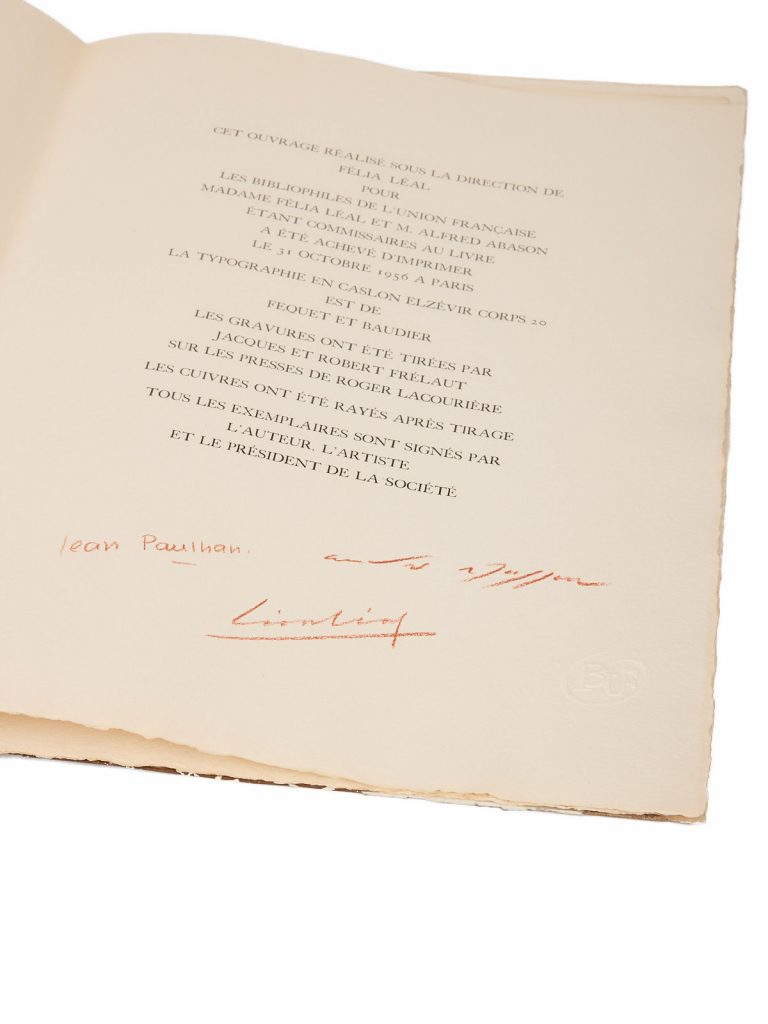 CET OUVRAGE RÉALISÉ SOUS LA DIRECTION DE
FÉLIA LÉAL
POUR
LES BIBLIOPHILES DE L'UNION FRANÇAISE
MADAME FÉLIA LÉAL ET M. ALFRED ABASON
ÉTANT COMMISSAIRES AU LIVRE
A ÉTÉ ACHEVÉ D'IMPRIMER
LE 31 OCTOBRE 1956 A PARIS
LA TYPOGRAPHIE EN CASLON ELZÉVIR CORPS 20
EST DE
FEQUET ET BAUDIER
LES GRAVURES ONT ÉTÉ TIRÉES PAR
JACQUES ET ROBERT FRÉLAUT
SUR LES PRESSES DE ROGER LACOURIÈRE
LES CUIVRES ONT ÉTÉ RAYÉS APRÈS TIRAGE
TOUS LES EXEMPLAIRES SONT SIGNÉS PAR
L'AUTEUR, L'ARTISTE
ET LE PRÉSIDENT DE LA SOCIÉTÉ
Jean Paulhan. andré Masson
BUF